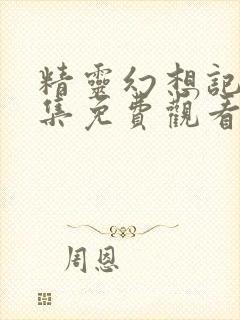 精靈幻想記
集免費觀看
周恩